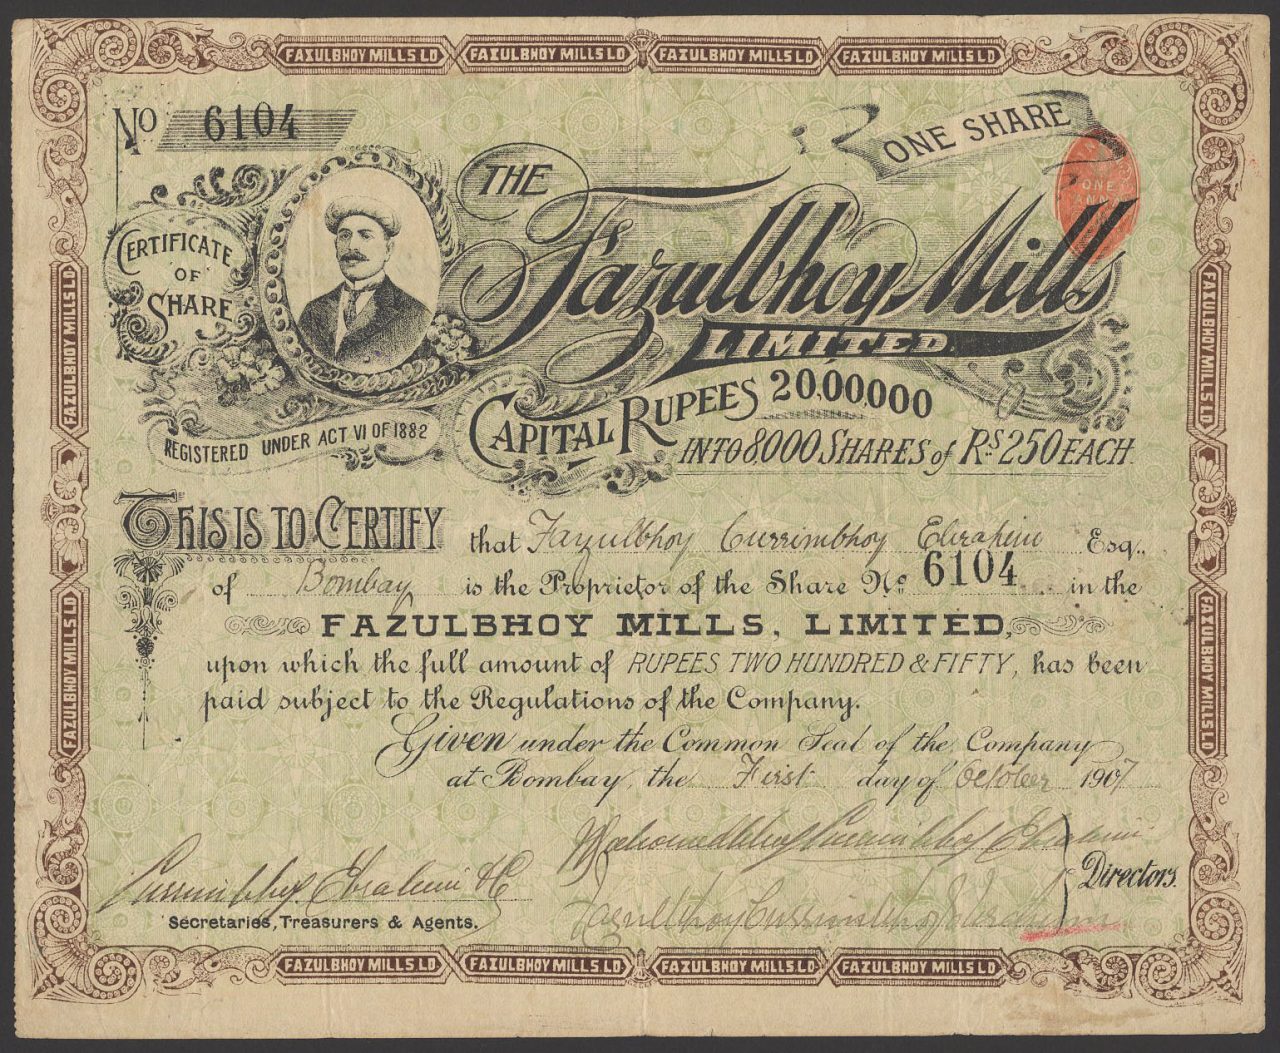 FAZULBHOY MILLS LD FAZULBHOY MILLS LD FAZULBHOY MILLS LD FAZULBHOY MILLS LD
No 6104
ONE SHARE
ONE
CERTIFICATE
OF
SHARE
THE
Fazulbhoy Mills
LIMITED.
REGISTERED UNDER ACT VI OF 1882
CAPITAL RUPEES 20,00,000
INTO 8,000 SHARES of Rs 250 EACH.
FAZULBHOY MILLS LD
FAZULBHOY MILLS LD
FAZULBHOY MILLS LD
FAZULBHOY MILLS LD
THIS IS TO CERTIFY that Fazulbhoy Currimbhoy Ebrahim Esq.,
of Bombay is the Proprietor of the Share No 6104 in the
FAZULBHOY MILLS, LIMITED,
upon which the full amount of RUPEES TWO HUNDRED & FIFTY, has been
paid subject to the Regulations of the Company.
Given under the Common Seal of the Company
at Bombay, the First day of October 1907
Mahomedbhoy Currimbhoy Ebrahim
Currimbhoy Ebrahim & Co
Directors.
Secretaries, Treasurers & Agents.
Fazulbhoy Currimbhoy Ebrahim
FAZULBHOY MILLS LD FAZULBHOY MILLS LD FAZULBHOY MILLS LD FAZULBHOY MILLS LD